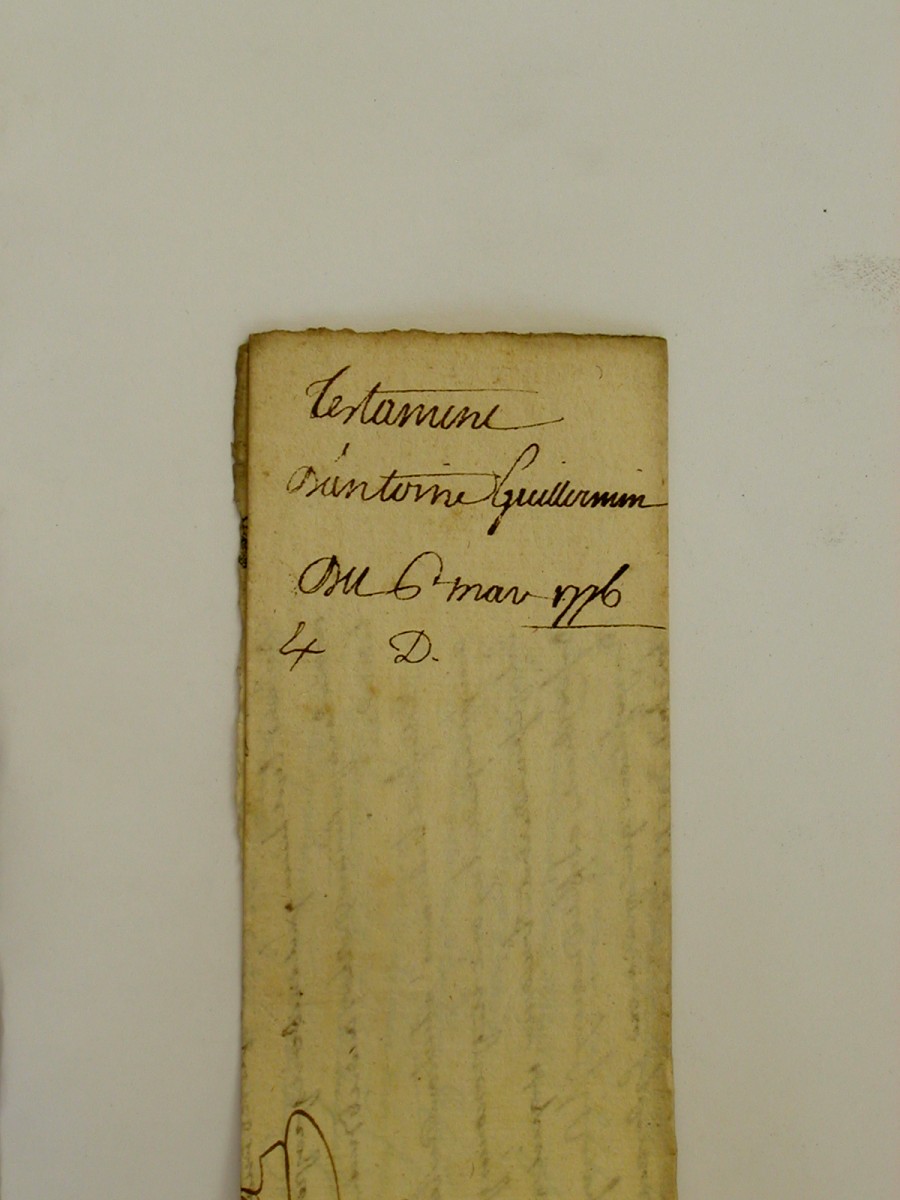 Testament
D'antoine Guillermin
Du 6 mars 1776
4 D.